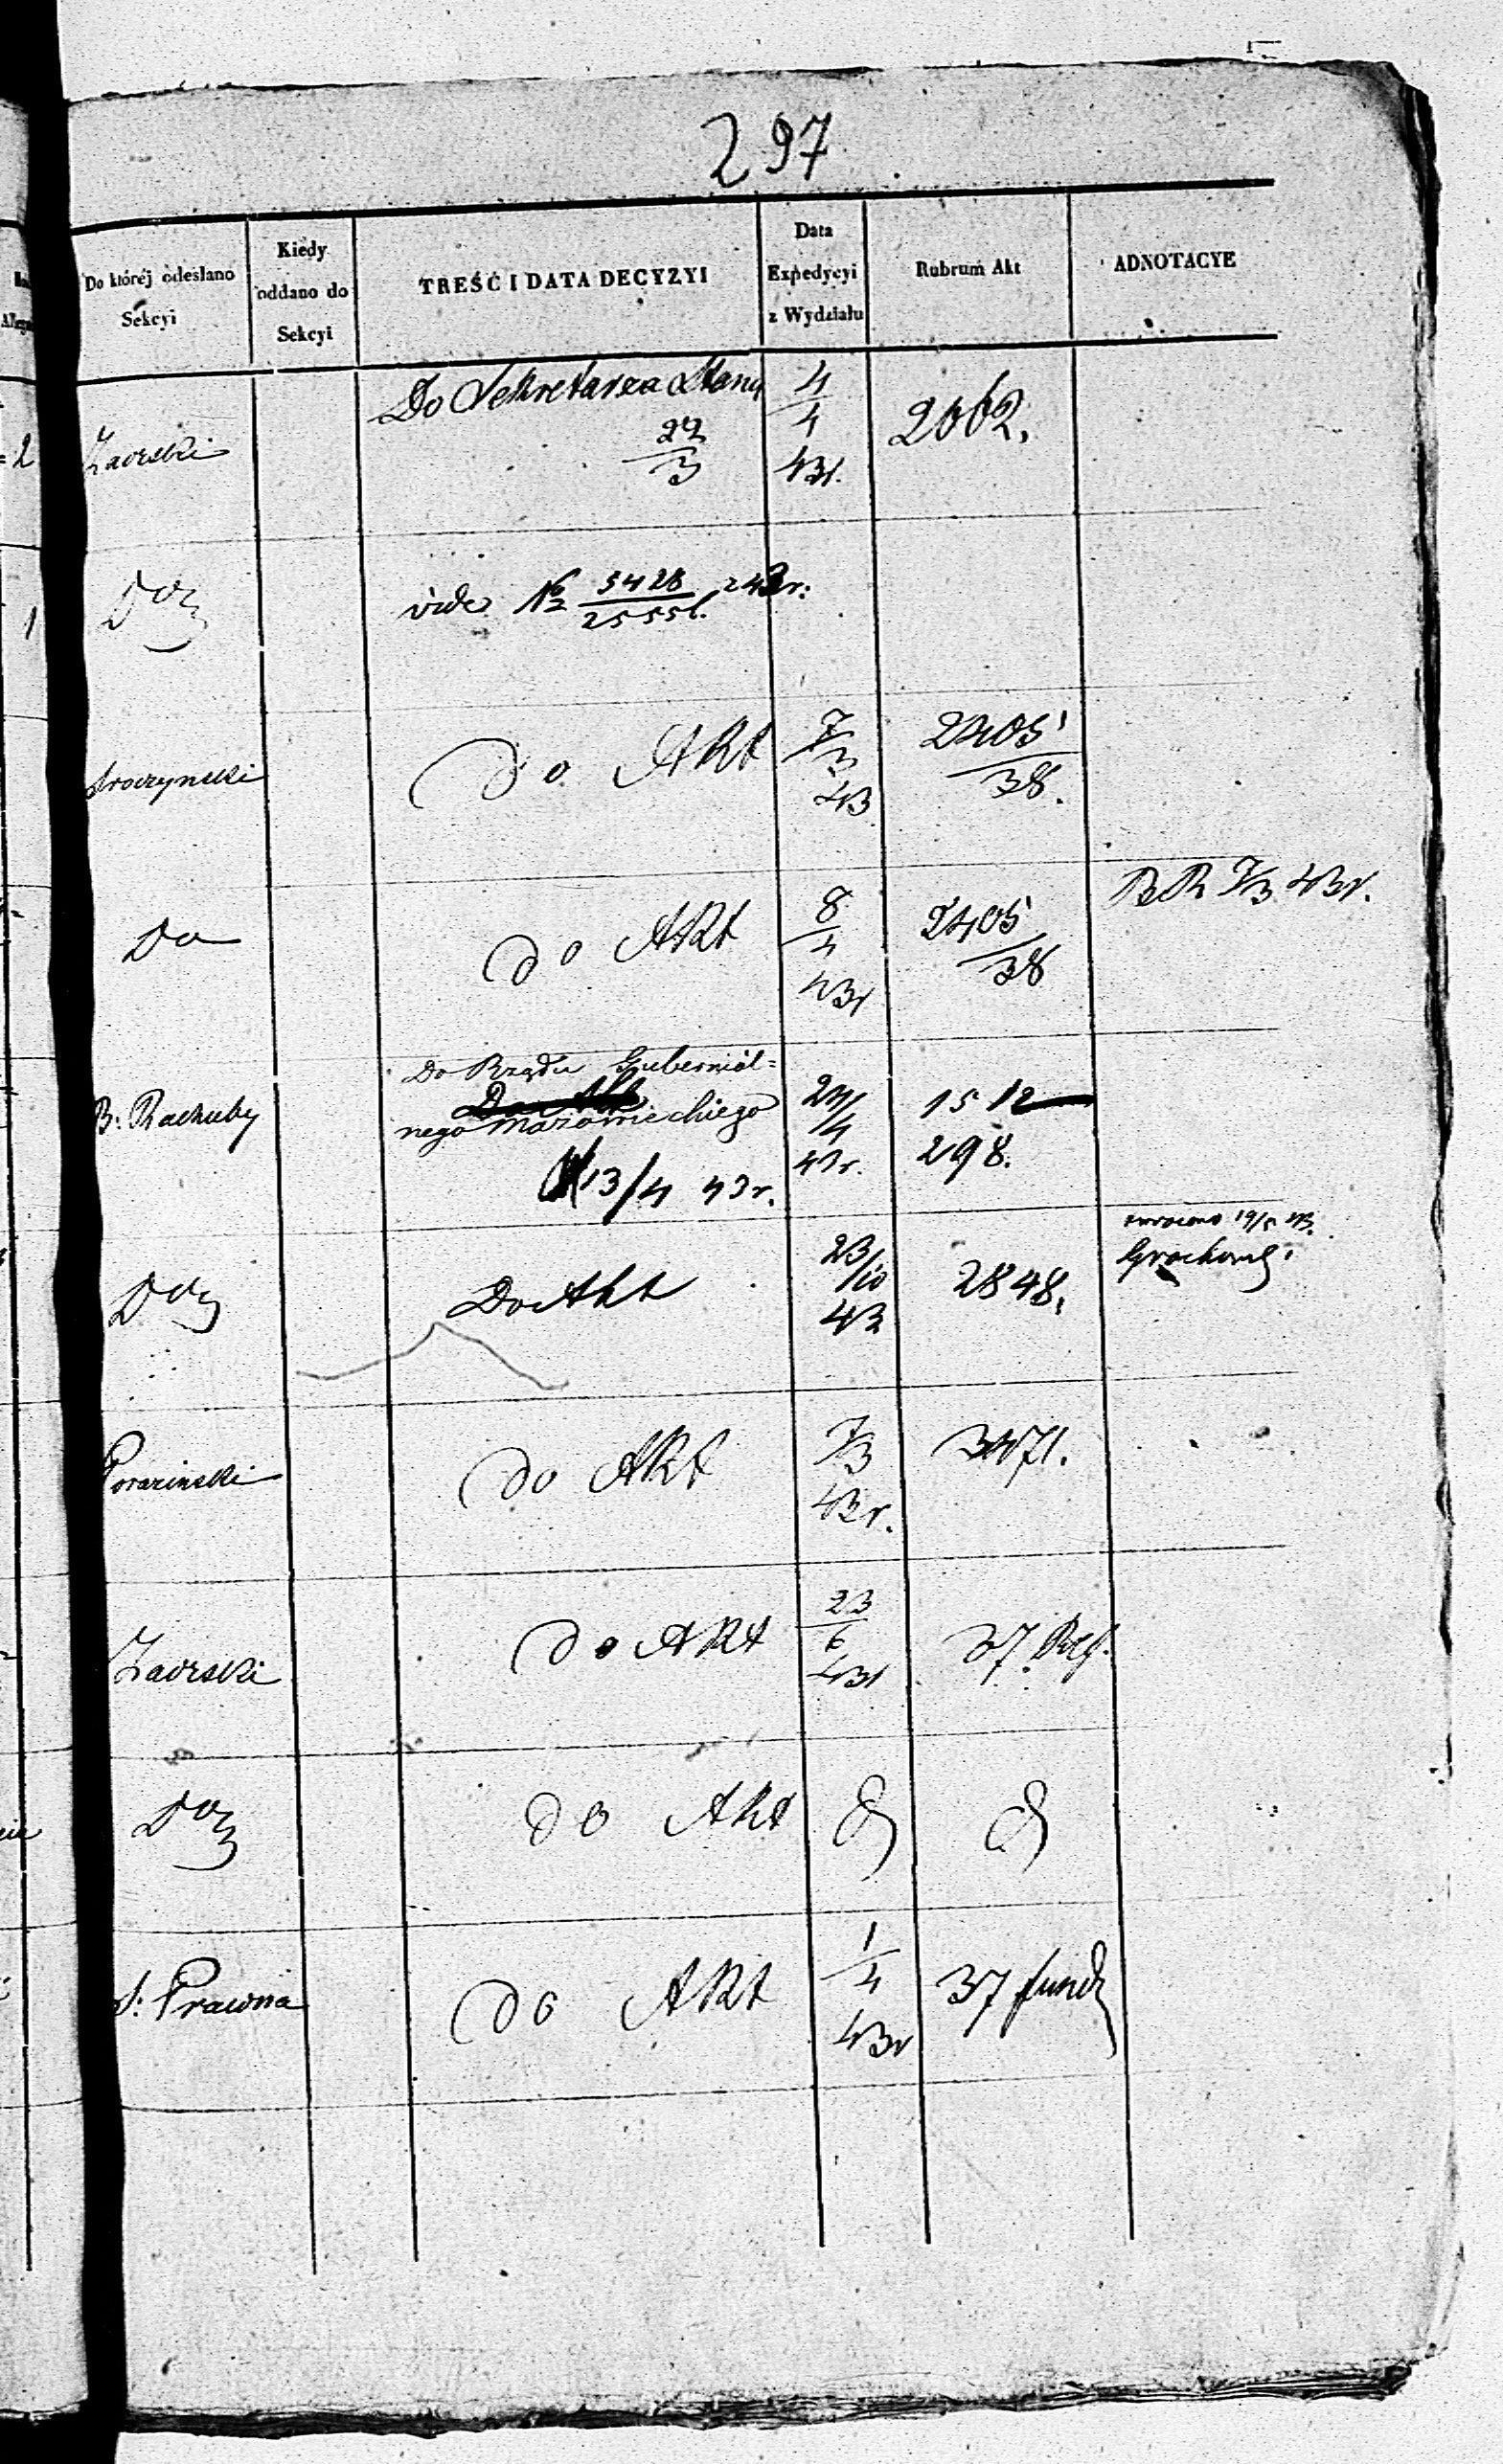 297
Do któréj odesłano
Sekcyi
Kiedy
oddano do
Sekcyi
TREŚĆ I DATA DECYZYI
Data
Expedycyi
z Wydziału
Rubrum Akt
ADNOTACYE
Zaorski
Do Sekretarza Stanu
27/3
4/4
43r.
2062.
2
Do
vide № 5428/25551. z 43r:
1
Do Akt
7/3
43
2405/38.
Do
do Akt
8/4
43r
2405/38
7/3 43r.
B: Rachuby
Do Rządu Gubernial=
Do Akt
nego Mazowieckiego
13/4 43r.
24/4
43r.
1512
298.
Do
Do Akt
23/10
43
2848.
zwrócono 19/5 43.
Porazinski
do Akt
7/3
43r.
3471.
Zaorski
do Akt
23/6
43r
37
Do
do Akt
S: Prawna
do Akt
1/4
43r
37 fund